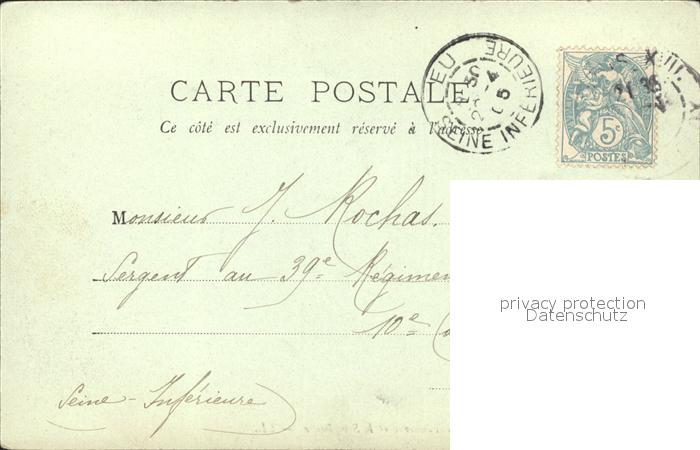 CARTE POSTALE
Ce côté est exclusivement réservé à l'adresse
EU
SEINE INFÉRIEURE
5c
POSTES
Monsieur J. Rochas.
Sergent au 39e Régimen
10e
Seine-Inférieure
privacy protection
Datenschutz